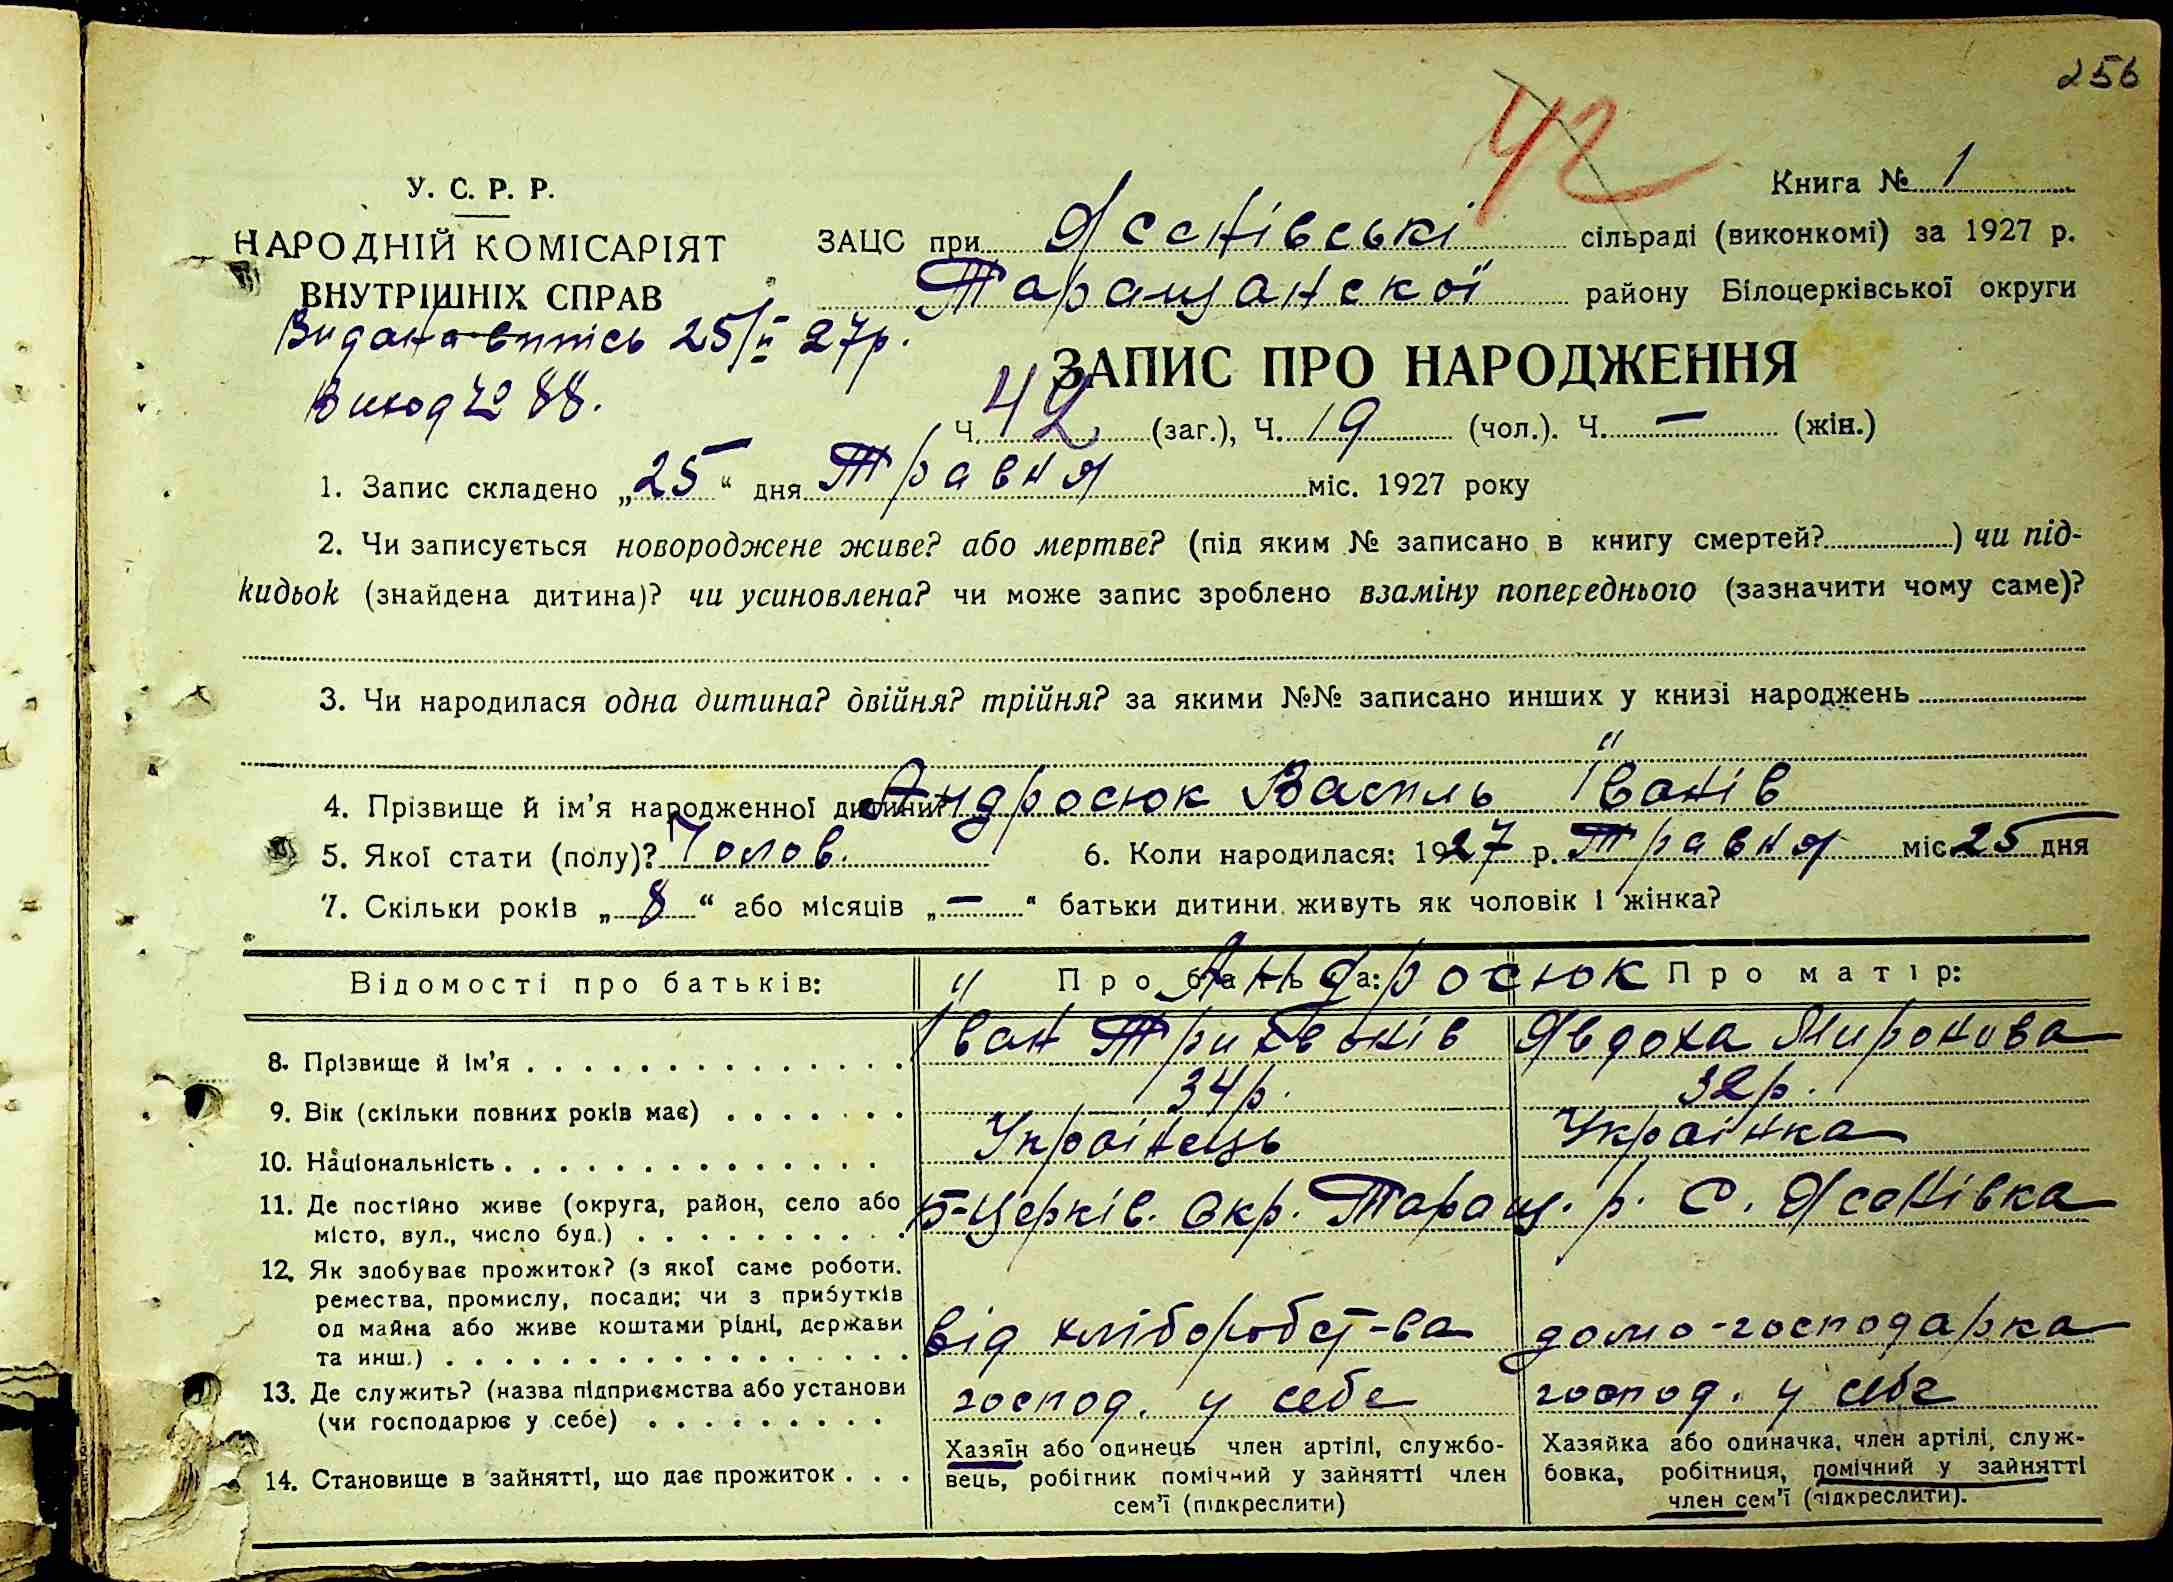 256
42
У. С. Р. Р.
Книга № 1
НАРОДНІЙ КОМІСАРІЯТ
ВНУТРІШНІХ СПРАВ
ЗАЦС при Ясенівські сільраді (виконкомі) за 1927 р.
Таращанскої району Білоцерківської округи
Видана випись 25/V 27р.
Виход № 88.
ЗАПИС ПРО НАРОДЖЕННЯ
Ч. 42 (заг.), Ч. 19 (чол.). Ч. — (жін.)
1. Запис складено „25“ дня Травня міс. 1927 року
2. Чи записується новороджене живе? або мертве? (під яким № записано в книгу смертей? ) чи під-
кидьок (знайдена дитина)? чи усиновлена? чи може запис зроблено взаміну попереднього (зазначити чому саме)?
3. Чи народилася одна дитина? двійня? трійня? за якими №№ записано инших у книзі народжень
4. Прізвище й ім’я народженної дитини? Андросюк Василь Іванів
5. Якої стати (полу)? Чолов. 6. Коли народилася: 1927 р. Травня міс 25 дня
7. Скільки років „8“ або місяців „—“ батьки дитини живуть як чоловік і жінка?
Відомості про батьків: Про батька: Про матір:
Андросюк
8. Прізвище й ім’я Іван Явдоха Миронова
9. Вік (скільки повних років має) 34р. 32р.
10. Національність Украінець Украінка
11. Де постійно живе (округа, район, село або
місто, вул., число буд.) Б-Церків. Окр. Таращ. р. С. Ясенівка
12. Як здобуває прожиток? (з якої саме роботи.
ремества, промислу, посади; чи з прибутків
од майна або живе коштами рідні, держави
та инш.) від хліборобст-ва домо-господарка
13. Де служить? (назва підприємства або установи
(чи господарює у себе) господ. у себе господ. у себе
14. Становище в зайнятті, що дає прожиток
Хазяїн або одинець член артілі, службо-
вець, робітник помічний у зайнятті член
сем’ї (підкреслити)
Хазяйка або одиначка, член артілі, служ-
бовка, робітниця, помічний у зайнятті
член сем’ї (підкреслити).